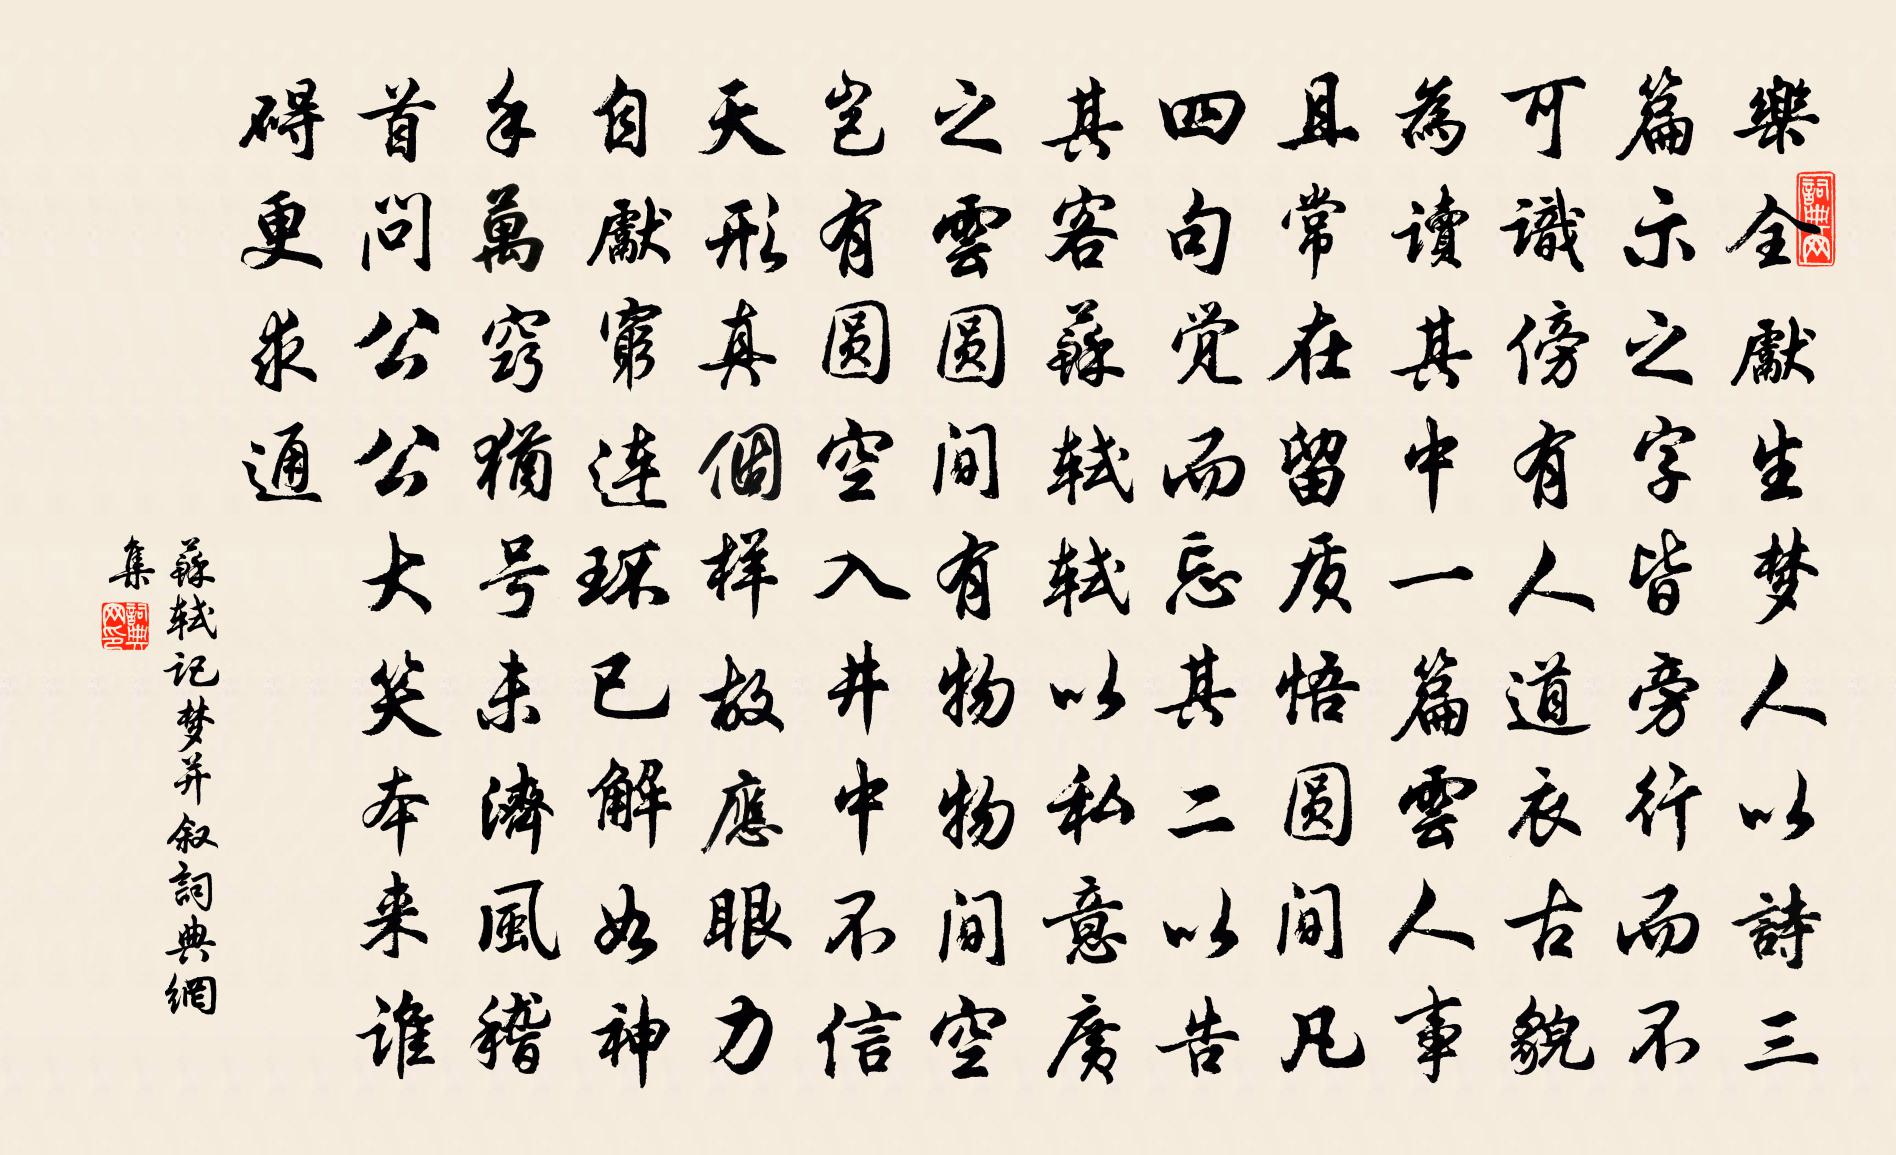 樂全獻生梦人以詩三
篇示之字皆旁行而不
可識傍有人道衣古貌
為讀其中一篇雲人事
且常在留质悟圆间凡
四句觉而忘其二以告
其客蘇轼轼以私意廣
之雲圆间有物物间空
岂有圆空入井中不信
天形真個样故應眼力
自獻窮连环已解如神
手萬窍猶号未濟風稽
首问公公大笑本来谁
碍更求通
蘇轼记梦并叙詞典網
集
詞典网
詞典网印